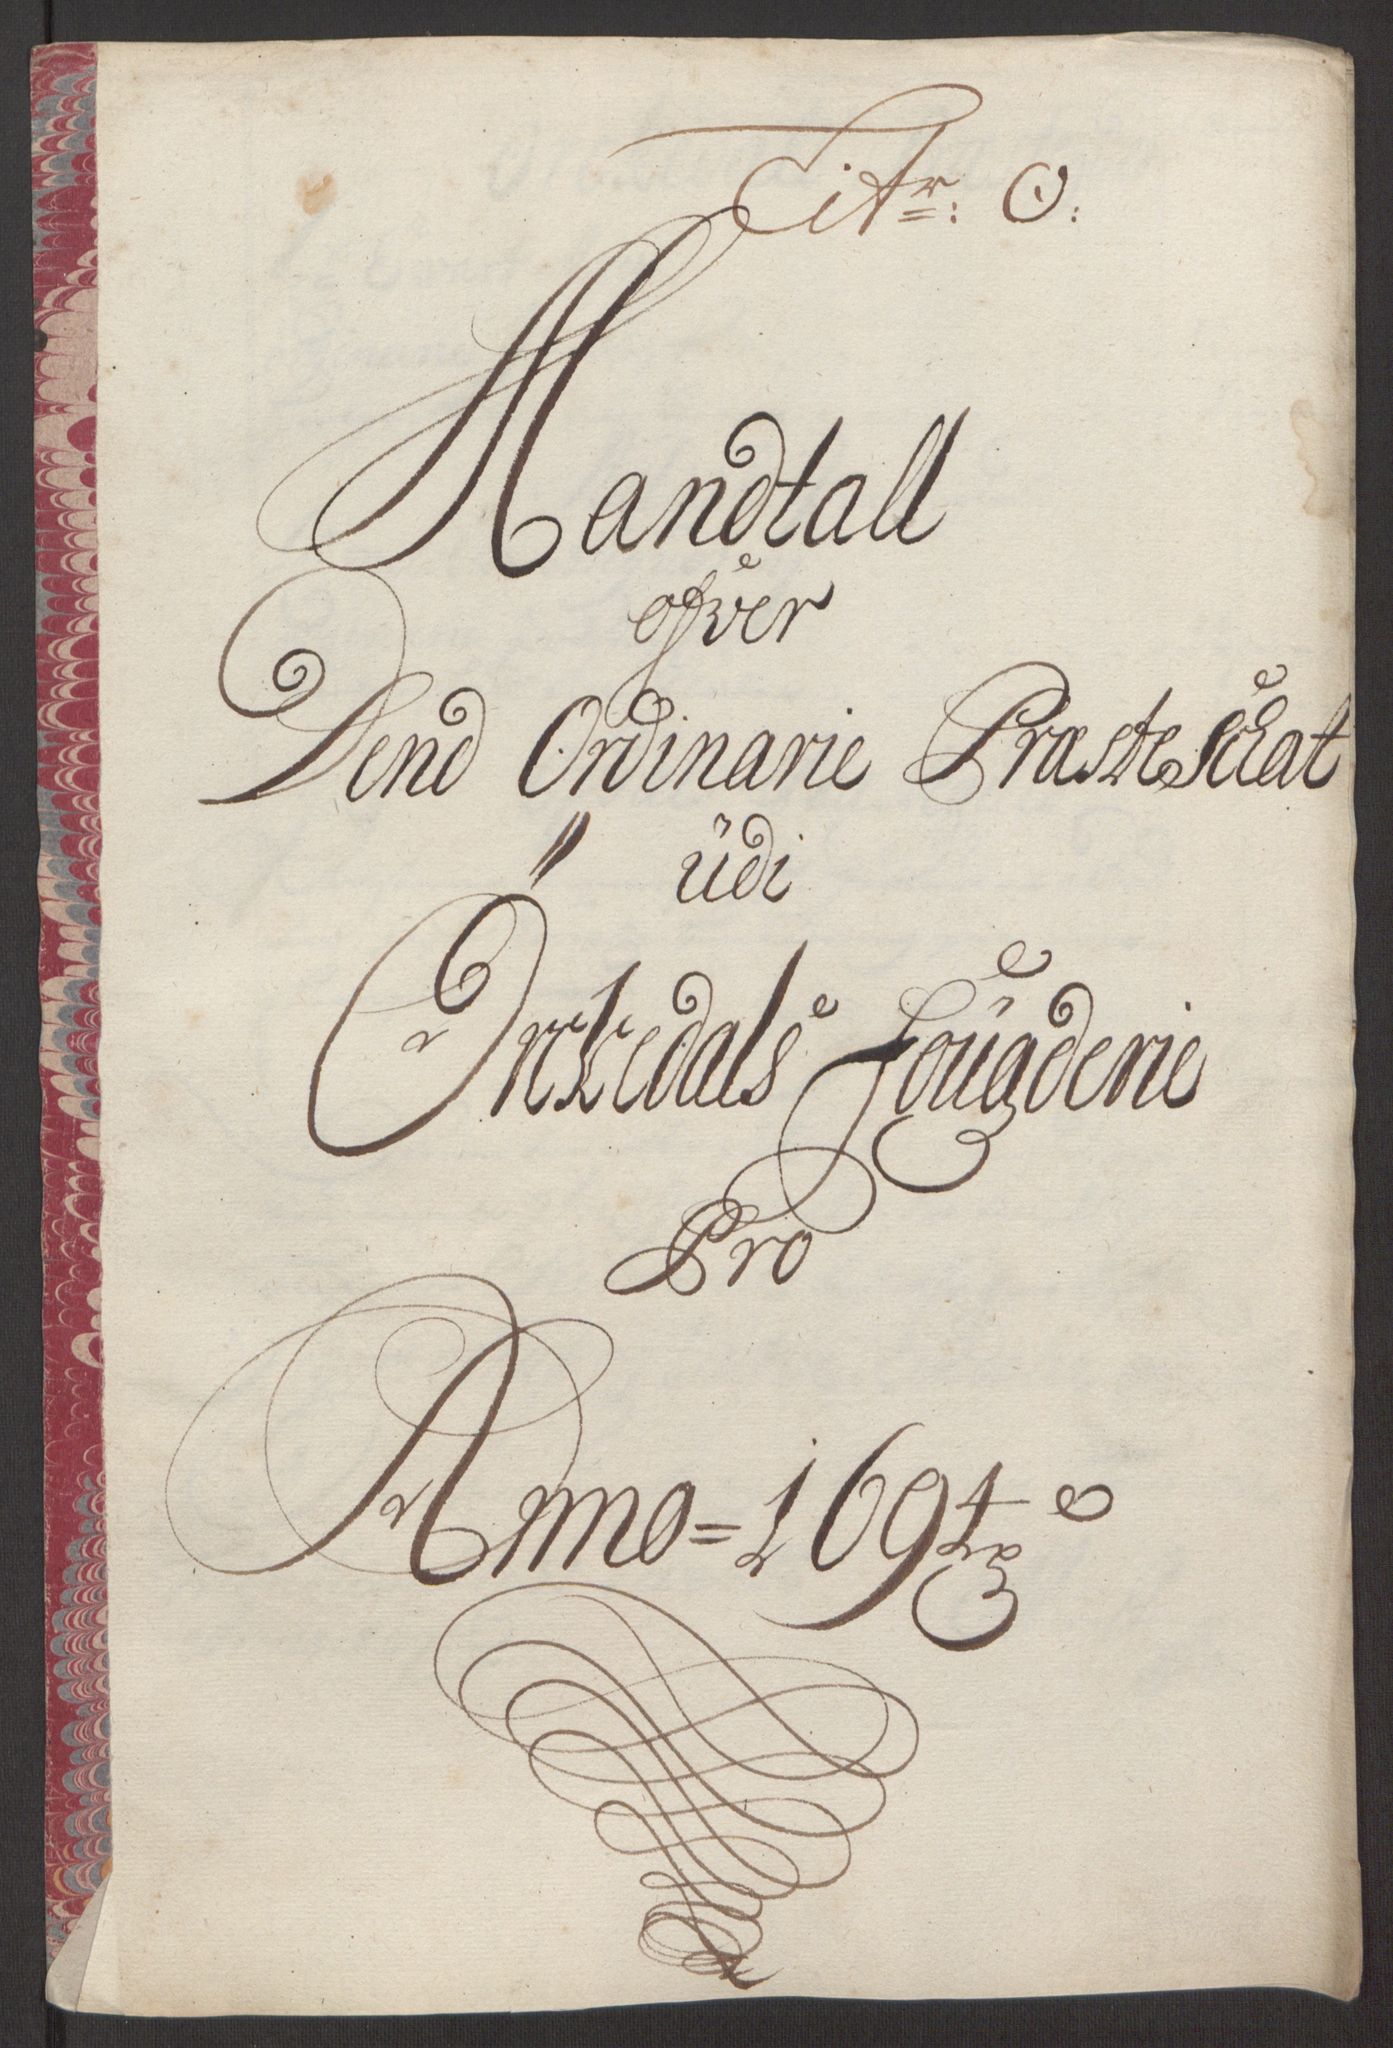 Litr: O:
Mandtall
ofver
Dend Ordinarie Præste Skat
udi
Orkedals Fougderie
Pro
Anno = 1694